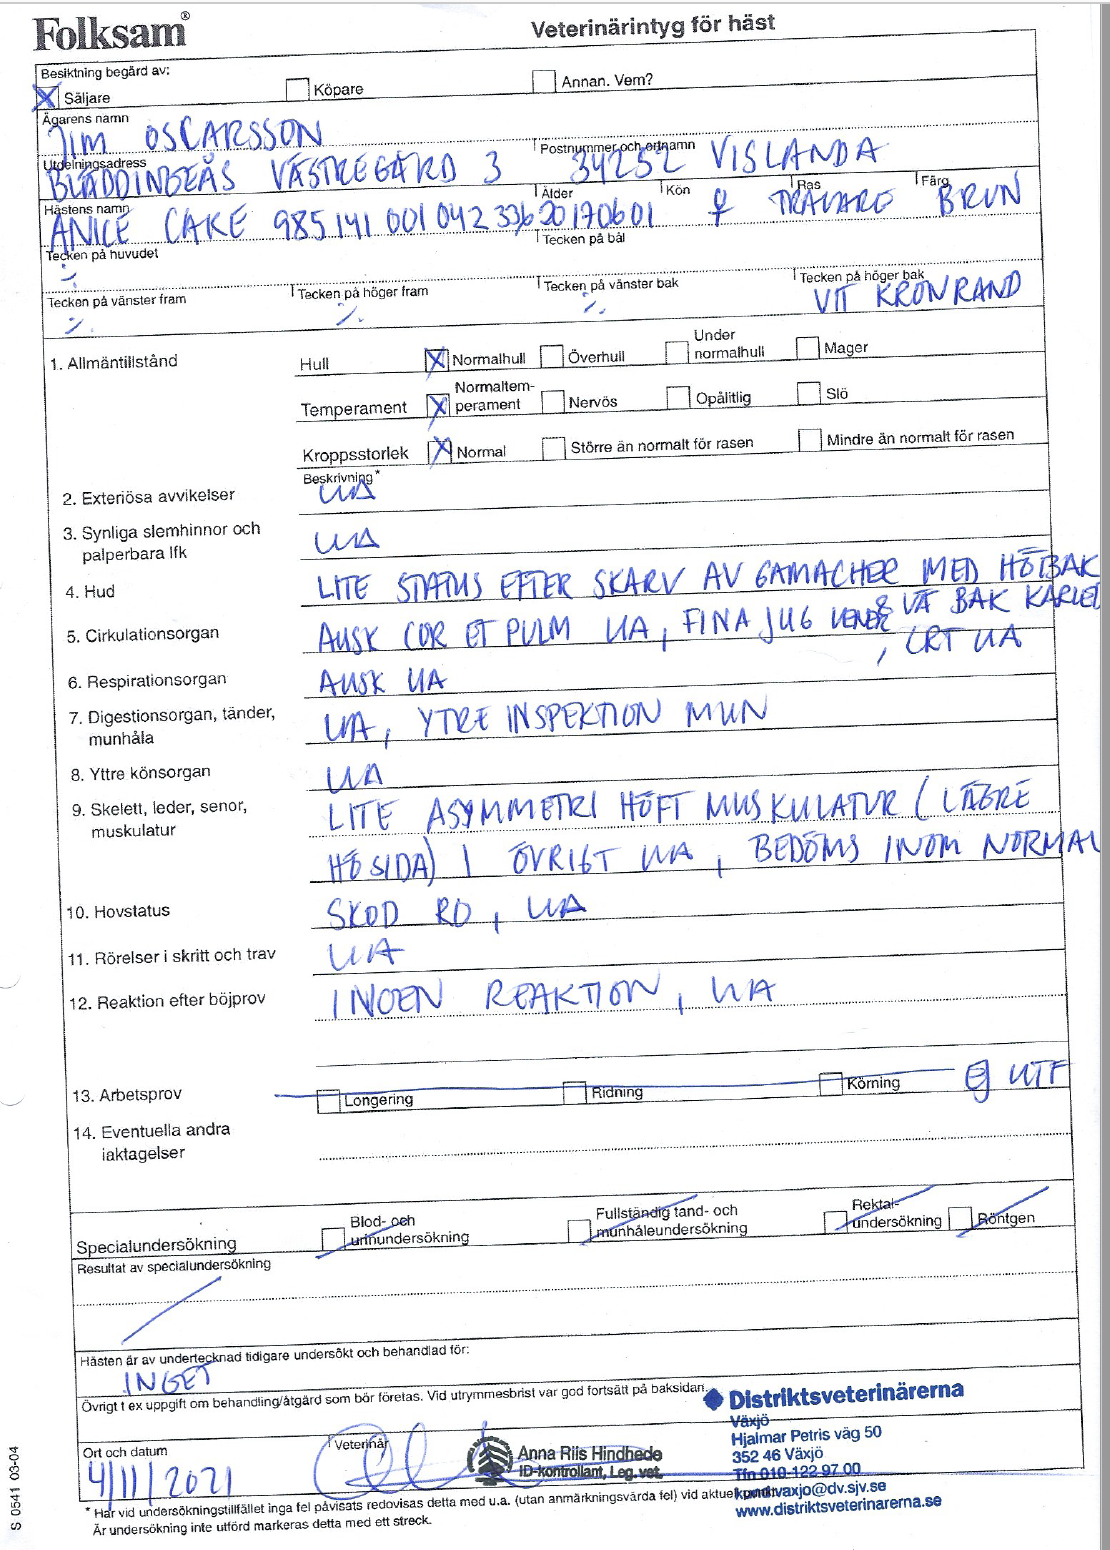 Folksam®
Veterinärintyg för häst
Besiktning begärd av:
Säljare
Köpare
Annan. Vem?
Ägarens namn
JIM OSCARSSON
Utdelningsadress
Postnummer och ortnamn
BLÄDDINGEÅS VÄSTREGÅRD 3
34252 VISLANDA
Hästens namn
Ålder
Kön
Ras
Färg
ANICE CAKE 985141001042336
20170601
♀
TRAVARE
BRUN
Tecken på huvudet
Tecken på bål
Tecken på vänster fram
Tecken på höger fram
Tecken på vänster bak
Tecken på höger bak
VIT KRONRAND
1. Allmäntillstånd
Hull
Normalhull
Överhull
Under normalhull
Mager
Temperament
Normaltem-
perament
Nervös
Opålitlig
Slö
Kroppsstorlek
Normal
Större än normalt för rasen
Mindre än normalt för rasen
Beskrivning*
2. Exteriösa avvikelser
UA
3. Synliga slemhinnor och
palperbara lfk
UA
4. Hud
LITE STATUS EFTER SKARV AV GAMACHER MED HÖ BAK
& VÄ BAK KARLED
5. Cirkulationsorgan
AUSK COR ET PULM UA, FINA JUG VENER
, CRT UA
6. Respirationsorgan
AUSK UA
7. Digestionsorgan, tänder,
munhåla
UA, YTRE INSPEKTION MUN
8. Yttre könsorgan
UA
9. Skelett, leder, senor,
muskulatur
LITE ASYMMETRI HÖFT MUSKULATUR (LÄGRE
HÖ SIDA) I ÖVRIGT UA, BEDÖMS INOM NORMAL
10. Hovstatus
SKOD RO, UA
11. Rörelser i skritt och trav
UA
12. Reaktion efter böjprov
INGEN REAKTION, UA
13. Arbetsprov
Longering
Ridning
Körning
EJ UTF
14. Eventuella andra
iaktagelser
Specialundersökning
Blod- och
urinundersökning
Fullständig tand- och
munhåleundersökning
Rektal-
undersökning
Röntgen
Resultat av specialundersökning
Hästen är av undertecknad tidigare undersökt och behandlad för:
INGET
Övrigt t ex uppgift om behandling/åtgärd som bör företas. Vid utrymmesbrist var god fortsätt på baksidan.
Distriktsveterinärerna
Växjö
Hjalmar Petris väg 50
352 46 Växjö
Tfn 010-122 97 00
kundvaxjo@dv.sjv.se
www.distriktsveterinarerna.se
Ort och datum
4/11/2021
Veterinär
Anna Riis Hindhede
ID-kontrollant, Leg. vet.
* Har vid undersökningstillfället inga fel påvisats redovisas detta med u.a. (utan anmärkningsvärda fel) vid aktuell punkt.
Är undersökning inte utförd markeras detta med ett streck.
S 0541 03-04